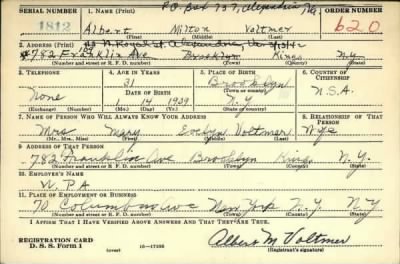 P.O. Box 737, Alexandria Va.
SERIAL NUMBER 1. NAME (Print) ORDER NUMBER
1812 Albert Milton Voltmer 620
(First) (Middle) (Last)
2. ADDRESS (Print)
N. Royal St. Alexandria
782 Franklin Ave Brooklyn Kings N.Y.
(Number and street or R. F. D. number) (Town) (County) (State)
3. TELEPHONE 4. AGE IN YEARS 5. PLACE OF BIRTH 6. COUNTRY OF CITIZENSHIP
31 Brooklyn
DATE OF BIRTH (Town or county)
None 14 1909 N.Y U.S.A.
(Exchange) (Number) (Mo.) (Day) (Yr.) (State or country)
7. NAME OF PERSON WHO WILL ALWAYS KNOW YOUR ADDRESS 8. RELATIONSHIP OF THAT PERSON
Mrs Mary Evelyn Voltmer Wife
(Mr., Mrs., Miss) (First) (Middle) (Last)
9. ADDRESS OF THAT PERSON
782 Franklin Ave Brooklyn Kings N.Y.
(Number and street or R. F. D. number) (Town) (County) (State)
10. EMPLOYER'S NAME
W.P.A
11. PLACE OF EMPLOYMENT OR BUSINESS
70 Columbus Ave New York N.Y N.Y
(Number and street or R. F. D. number) (Town) (County) (State)
I AFFIRM THAT I HAVE VERIFIED ABOVE ANSWERS AND THAT THEY ARE TRUE.
REGISTRATION CARD
D. S. S. Form 1 (over) 16—17105 Albert M Voltmer
(Registrant's signature)